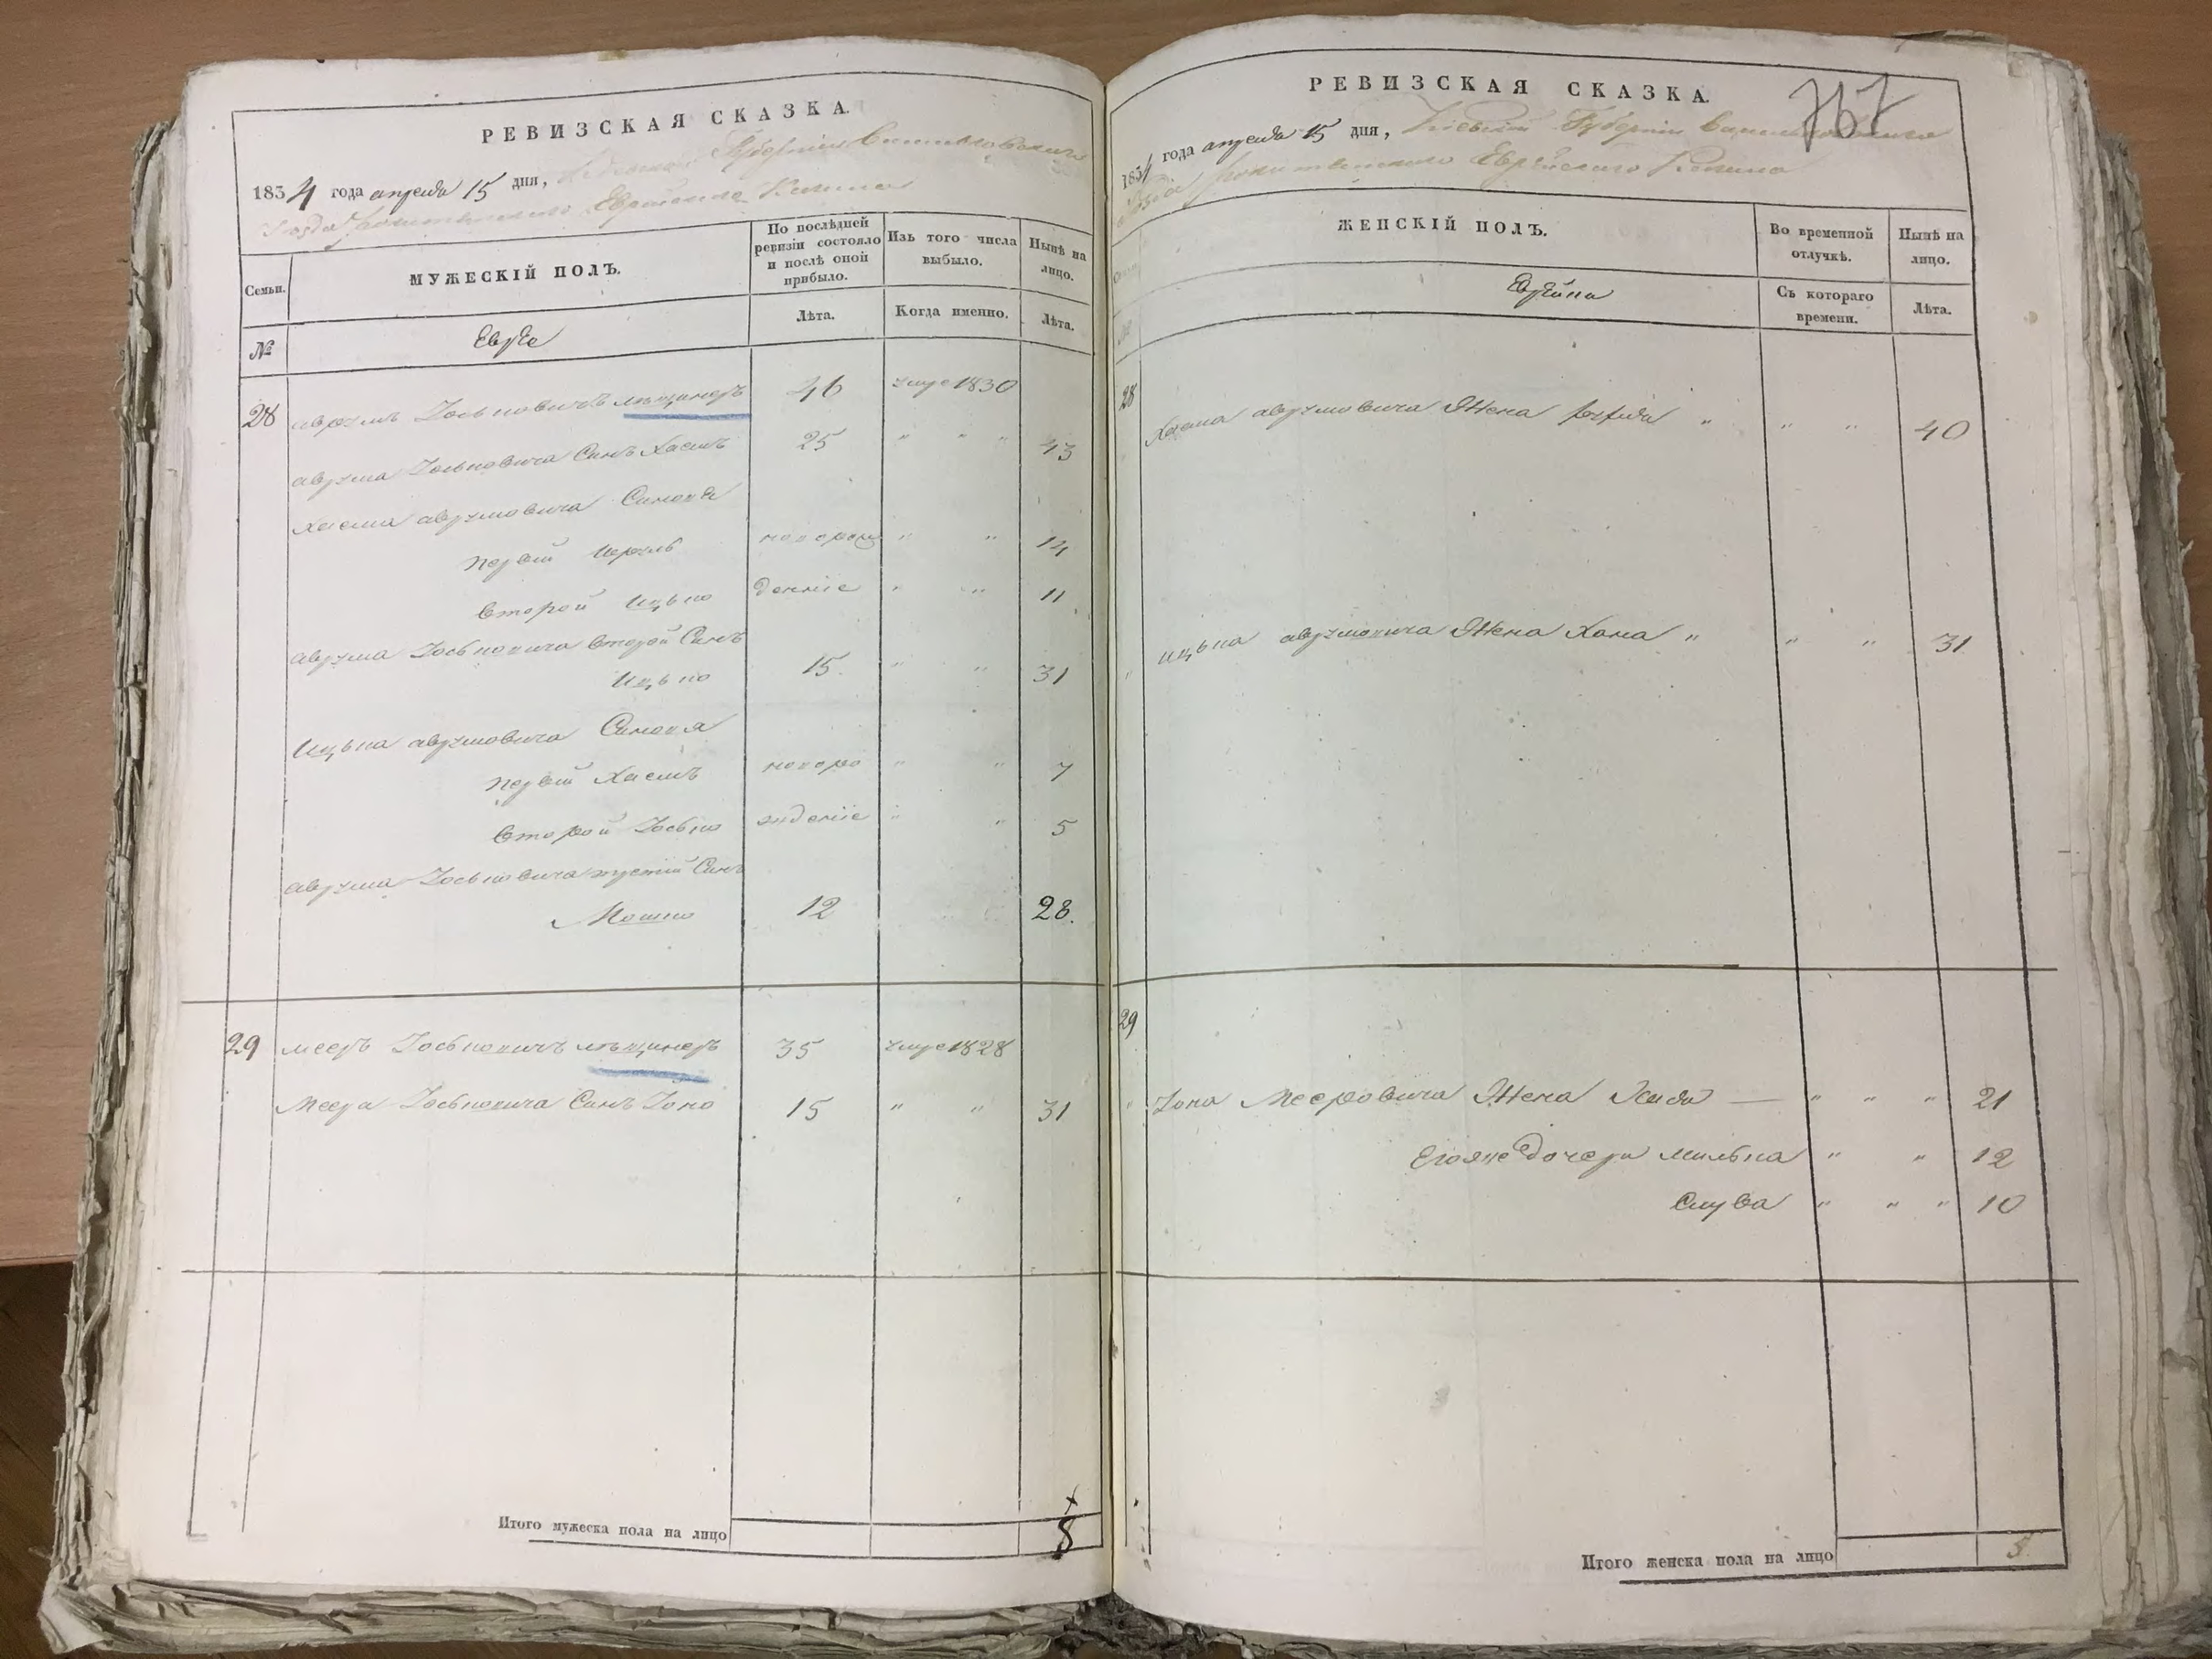 РЕВИЗСКАЯ СКАЗКА.
1834 года апреля 15 дня, Губернии Васильковскаго
Уезда Еврейскаго Кагала
Семьи.
МУЖЕСКІЙ ПОЛЪ.
По послѣдней ревизіи состояло и послѣ оной прибыло.
Изъ того числа выбыло.
Нынѣ на лицо.
№
Евреи
Лѣта.
Когда именно.
Лѣта.
28 Аврумъ Иоськовичъ 46 умре 1830
Аврума Иоськовича Сынъ Хаемъ 25 " " " 43
Хаема Аврумовича Синовя
первій новорож " " 14
второй Ицько деніе " " 11
Аврума Иоськовича второй Синъ
Ицько 15 " " 31
Ицька Аврумовича Синовя
первій Хаемъ новоро " " 7
второй Иосько жденіе " " 5
Аврума Иоськовича третій Синъ
Мошко 12 28.
29 Мееръ Иоськовичъ 35 умре 1828
Меера Иоськовича Синъ Ионо 15 " " 31
Итого мужеска пола на лицо 8
РЕВИЗСКАЯ СКАЗКА.
767
1834 года апреля 15 дня, Кіевской Губерніи Васильковскаго
Уезда Еврейскаго Кагала
ЖЕНСКІЙ ПОЛЪ.
Во временной отлучкѣ.
Нынѣ на лицо.
Еврейки
Съ котораго времени.
Лѣта.
28 Хаема Аврумовича Жена " " " 40
" Ицька Аврумовича Жена Хана " " " 31
29
" Иона Мееровича Жена " " " 21
Егояже дочери Милька " " 12
Слува " " " 10
Итого женска пола на лицо 5